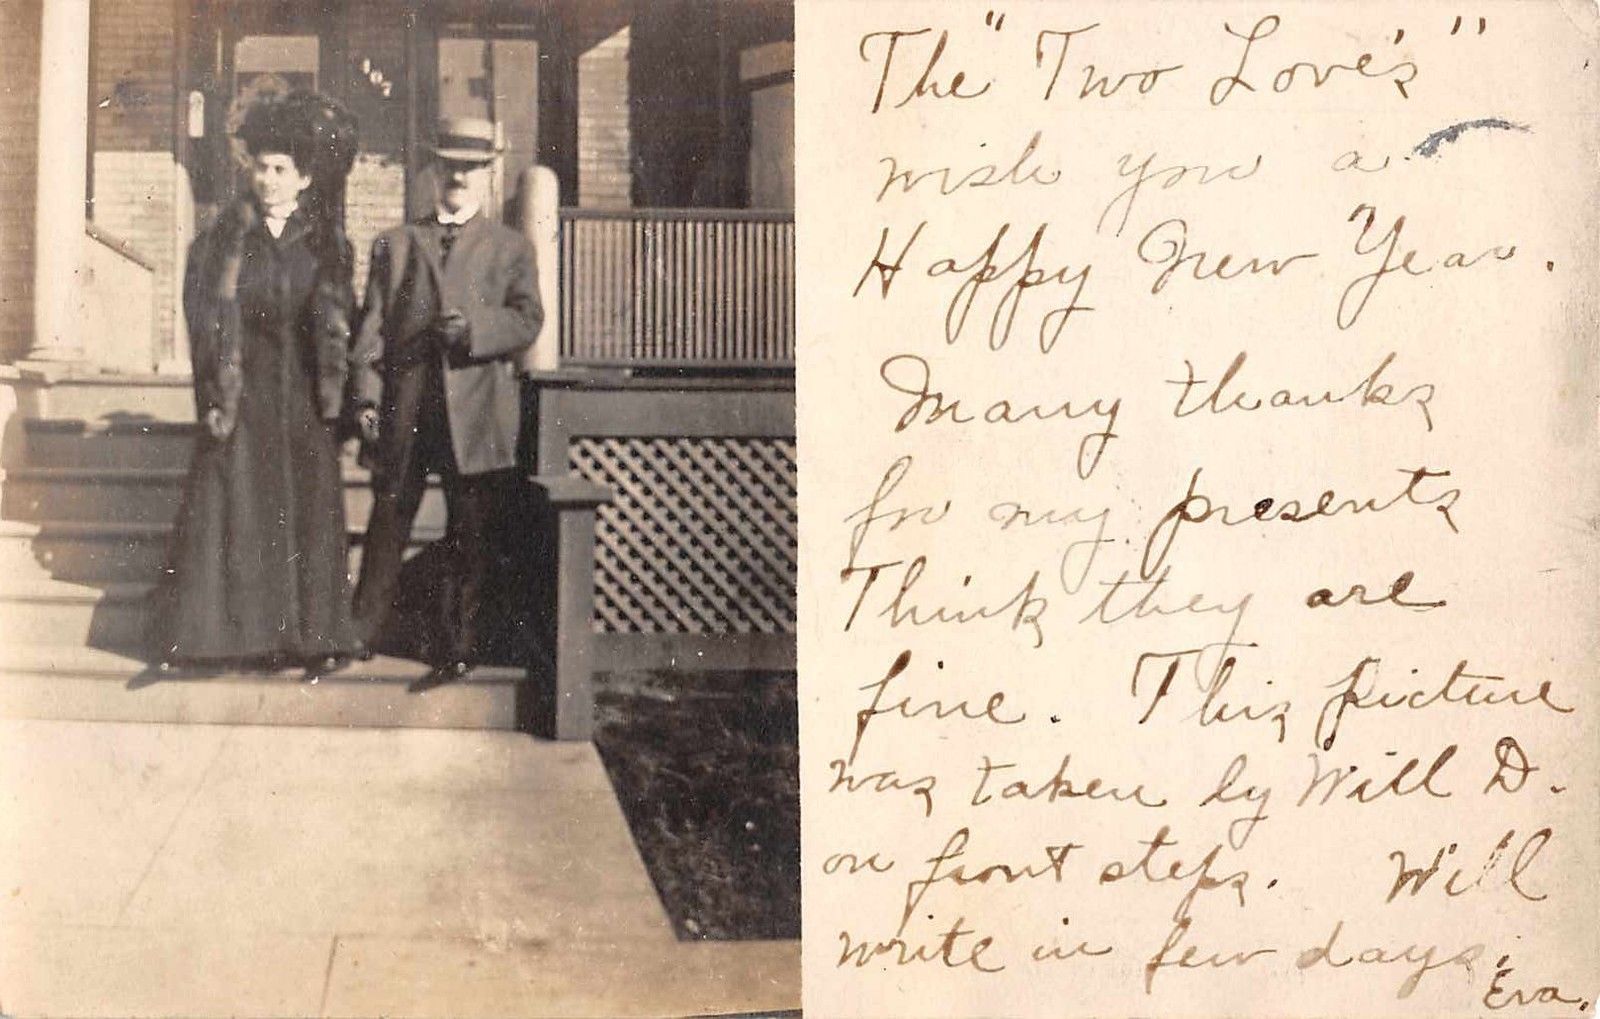 The "Two Love's"
wish you a
Happy New Year.
Many thanks
for my presents
Think they are
fine. This picture
was taken by Will D.
on front steps. Will
write in few days.
Eva.